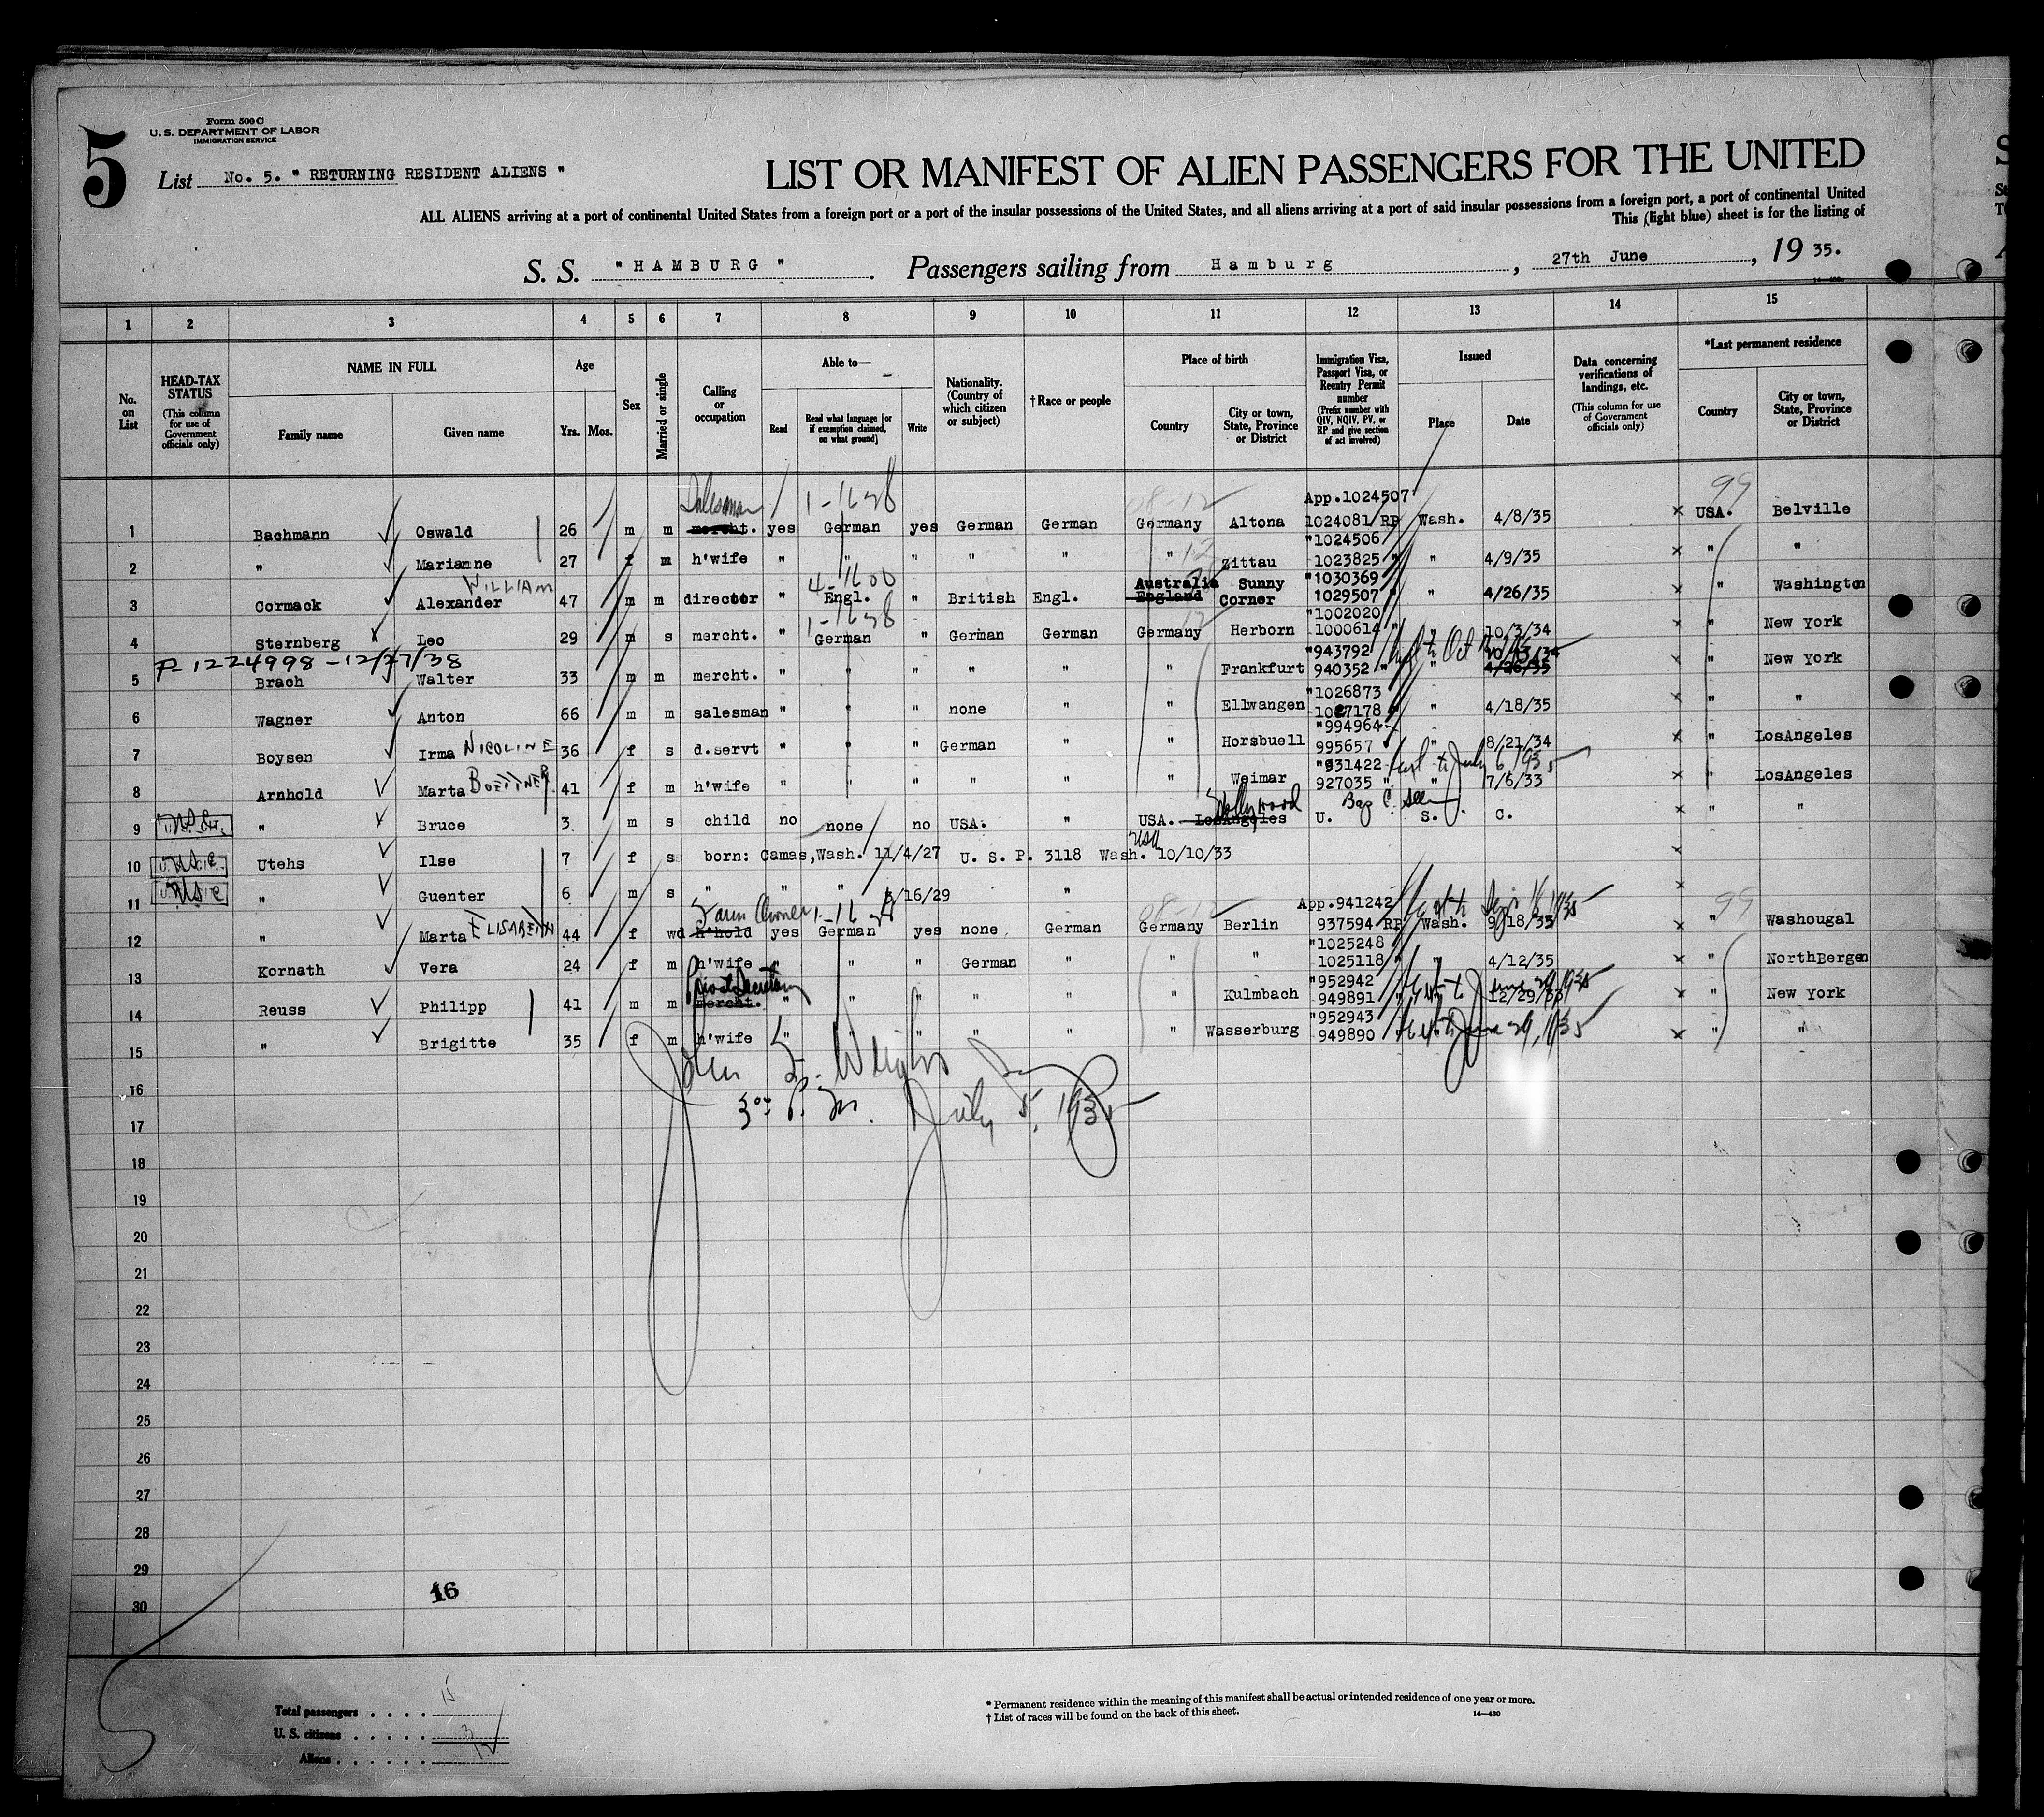 5
Form 500 C
U. S. DEPARTMENT OF LABOR
IMMIGRATION SERVICE
List No. 5. " RETURNING RESIDENT ALIENS "
LIST OR MANIFEST OF ALIEN PASSENGERS FOR THE UNITED
ALL ALIENS arriving at a port of continental United States from a foreign port or a port of the insular possessions of the United States, and all aliens arriving at a port of said insular possessions from a foreign port, a port of continental United
This (light blue) sheet is for the listing of
S. S. " HAMBURG " . Passengers sailing from Hamburg , 27th June , 19 35.
1 2 3 4 5 6 7 8 9 10 11 12 13 14 15
No. on List
HEAD-TAX STATUS (This column for use of Government officials only)
NAME IN FULL
Family name Given name
Age
Yrs. Mos.
Sex
Married or single
Calling or occupation
Able to—
Read Read what language [or if exemption claimed, on what ground] Write
Nationality. (Country of which citizen or subject)
† Race or people
Place of birth
Country City or town, State, Province or District
Immigration Visa, Passport Visa, or Reentry Permit number (Prefix number with QIV, NQIV, PV, or RP and give section of act involved)
Issued
Place Date
Data concerning verifications of landings, etc. (This column for use of Government officials only)
*Last permanent residence
Country City or town, State, Province or District
Salesman 1-1638 08-12 App.1024507 99
1 Bachmann Oswald 26 m m mercht. yes German yes German German Germany Altona 1024081 RP Wash. 4/8/35 x USA. Belville
"1024506
2 " Marianne 27 f m h'wife " " " " " " Zittau 1023825 " " 4/9/35 x " "
WILLIAM Australia Sunny "1030369
3 Cormack Alexander 47 m m director " Engl. " British Engl. England Corner 1029507 " " 4/26/35 x " Washington
1-1638 12 "1002020
4 Sternberg Leo 29 m s mercht. " German " German German Germany Herborn 1000614 " " 10/3/34 x " New York
P-1224998-12/27/38 "943792
5 Brach Walter 33 m m mercht. " " " " " " Frankfurt 940352 " " 4/26/35 x " New York
"1026873
6 Wagner Anton 66 m m salesman " " " none " " Ellwangen 1027178 " " 4/18/35 x " "
"994964
7 Boysen Irma NICOLINE 36 f s d.servt " " " German " " Horsbuell 995657 " 8/21/34 x " LosAngeles
"931422 July 6 1935
8 Arnhold Marta BOETTNER 41 f m h'wife " " " " " " Weimar 927035 " " 7/6/33 x " LosAngeles
Hollywood
9 USC " Bruce 3 m s child no none no USA. " USA. LosAngeles U. S. C. x " "
10 USC Utehs Ilse 7 f s born: Camas,Wash. 11/4/27 U. S. P. 3118 Wash. 10/10/33 x
11 USC " Guenter 6 m s " " " 3/16/29 " x
Farm Owner 1-1638 08-12 App.941242 99
12 " Marta ELISABETH 44 f wd h'hold yes German yes none German Germany Berlin 937594 RP Wash. 9/18/33 x " Washougal
"1025248
13 Kornath Vera 24 f m h'wife " " " German " " " 1025118 " " 4/12/35 x " NorthBergen
"952942 June 29 1935
14 Reuss Philipp 41 m m mercht. " " " " " " Kulmbach 949891 " " 12/29/33 x " New York
"952943
15 " Brigitte 35 f m h'wife " " " " " " Wasserburg 949890 " June 29, 1935 x " "
16
3 00 P. m. July 5, 1935
17
18
19
20
21
22
23
24
25
26
27
28
29
30
16
Total passengers . . . . 15
U. S. citizens . . . . . 3
Aliens . . . . . . 12
* Permanent residence within the meaning of this manifest shall be actual or intended residence of one year or more.
† List of races will be found on the back of this sheet.
14—430